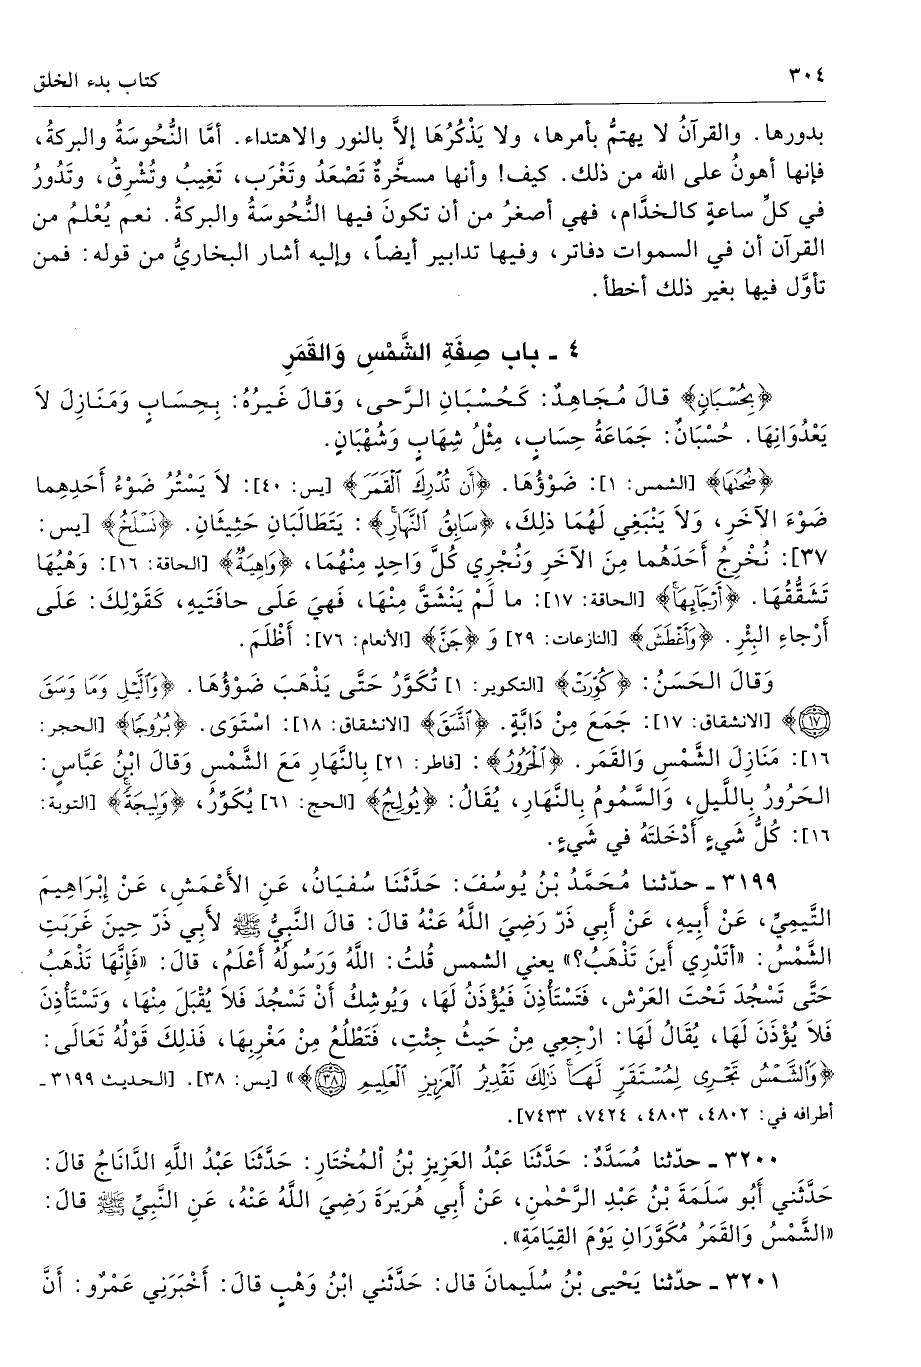 ٣٠٤
كتاب بدء الخلق
بدورها. والقرآنُ لا يهتمُّ بأمرها، ولا يَذْكُرُهَا إلاَّ بالنور والاهتداء. أمَّا النُّحُوسَةُ والبركةُ،
فإِنها أهونُ على الله من ذلك. كيف! وأنها مسخَّرةٌ تَصْعَدُ وتَغْرَب، تَغِيبُ وتُشْرِقُ، وتَدُورُ
في كلِّ ساعةٍ كالخدَّام، فهي أصغرُ من أن تكونَ فيها النُّحُوسَةُ والبركةُ. نعم يُعْلمُ من
القرآن أن في السموات دفاتر، وفيها تدابير أيضاً، وإليه أشار البخاريُّ من قوله: فمن
تأوَّل فيها بغير ذلك أخطأ.
٤ ـ باب صِفَةِ الشَّمْسِ وَالقَمَرِ
﴿بِحُسْبَانٍ﴾ قالَ مُجَاهِدٌ: كَحُسْبَانِ الرَّحى، وَقالَ غَيرُهُ: بِحِسَابٍ وَمَنَازِلَ لاَ
يَعْدُوَانِهَا. حُسْبَانٌ: جَمَاعَةُ حِسَابٍ، مِثْلُ شِهَابٍ وَشُهْبَانٍ.
﴿ضُحَاهَا﴾ [الشمس: ١]: ضَوْؤُهَا. ﴿أَن تُدْرِكَ الْقَمَرَ﴾ [يس: ٤٠]: لاَ يَسْتُرُ ضَوْءُ أَحَدِهِما
ضَوْءَ الآخَرِ، وَلاَ يَنْبَغِي لَهُمَا ذلِكَ، ﴿سَابِقُ النَّهَارِ﴾: يَتَطَالَبَانِ حَثِيثَانِ. ﴿نَسْلَخُ﴾ [يس:
٣٧]: نُخْرِجُ أَحَدَهُما مِنَ الآخَرِ وَنُجْرِي كُلَّ وَاحِدٍ مِنْهُمَا، ﴿وَاهِيَةٌ﴾ [الحاقة: ١٦]: وَهْيُهَا
تَشَقُّقُهَا. ﴿أَرْجَائِهَا﴾ [الحاقة: ١٧]: ما لَمْ يَنْشَقَّ مِنْهَا، فَهيَ عَلَى حافَتَيهِ، كَقَوْلِكَ: عَلَى
أَرْجاءِ البِئْرِ. ﴿وَأَغْطَشَ﴾ [النازعات: ٢٩] وَ ﴿جَنَّ﴾ [الأنعام: ٧٦]: أَظْلَمَ.
وَقالَ الحَسَنُ: ﴿كُوِّرَتْ﴾ [التكوير: ١] تُكَوَّرُ حَتَّى يَذْهَبَ ضَوْؤُهَا. ﴿وَالَّيْلِ وَمَا وَسَقَ
﴿١٧﴾﴾ [الانشقاق: ١٧]: جَمَعَ مِنْ دَابَّةٍ. ﴿اتَّسَقَ﴾ [الانشقاق: ١٨]: اسْتَوَى. ﴿بُرُوجًا﴾ [الحجر:
١٦]: مَنَازِلَ الشَّمْسِ وَالقَمَرِ. ﴿الْحَرُورُ﴾: [فاطر: ٢١] بِالنَّهَارِ مَعَ الشَّمْسِ وَقالَ ابْنُ عَبَّاسٍ:
الحَرُورُ بِاللَّيلِ، وَالسَّمُومُ بِالنَّهَارِ، يُقَالُ: ﴿يُولِجُ﴾ [الحج: ٦١] يُكَوِّرُ، ﴿وَلِيجَةً﴾ [التوبة:
١٦]: كُلُّ شَيءٍ أَدْخَلتَهُ في شَيءٍ.
٣١٩٩ ـ حدّثنا مُحَمَّدُ بْنُ يُوسُفَ: حَدَّثَنَا سُفيَانُ، عَنِ الأَعْمَشِ، عَنْ إِبْرَاهِيمَ
التَّيمِيِّ، عَنْ أَبِيهِ، عَنْ أَبِي ذَرٍّ رَضِيَ اللَّهُ عَنْهُ قالَ: قالَ النَّبِيُّ ﷺ لأَبِي ذَرٍّ حِينَ غَرَبَتِ
الشَّمْسُ: «أَتَدْرِي أَينَ تَذْهَبُ؟» يعني الشمس قُلتُ: اللَّهُ وَرَسُولُهُ أَعْلَمُ، قالَ: «فَإِنَّهَا تَذْهَبُ
حَتَّى تَسْجُدَ تَحْتَ العَرْشِ، فَتَسْتَأْذِنَ فَيُؤْذَنُ لَهَا، وَيُوشِكُ أَنْ تَسْجُدَ فَلاَ يُقْبَلَ مِنْهَا، وَتَسْتَأْذِنَ
فَلاَ يُؤْذَنَ لَهَا، يُقَالُ لَهَا: ارْجِعِي مِنْ حَيثُ جِئْتِ، فَتَطْلُعُ مِنْ مَغْرِبِهَا، فَذلِكَ قَوْلُهُ تَعَالَى:
﴿وَالشَّمْسُ تَجْرِى لِمُسْتَقَرٍّ لَّهَا ذَٰلِكَ تَقْدِيرُ الْعَزِيزِ الْعَلِيمِ ﴿٣٨﴾﴾» [يس: ٣٨]. [الحديث ٣١٩٩ ـ
أطرافه في: ٤٨٠٢، ٤٨٠٣، ٧٤٢٤، ٧٤٣٣].
٣٢٠٠ ـ حدّثنا مُسَدَّدٌ: حَدَّثَنَا عَبْدُ العَزِيزِ بْنُ المُخْتَارِ: حَدَّثَنَا عَبْدُ اللَّهِ الدَّانَاجُ قالَ:
حَدَّثَني أَبُو سَلَمَةَ بْنُ عَبْدِ الرَّحْمٰنِ، عَنْ أَبِي هُرَيرَةَ رَضِيَ اللَّهُ عَنْهُ، عَنِ النَّبِيِّ ﷺ قالَ:
«الشَّمْسُ وَالقَمَرُ مُكَوَّرَانِ يَوْمَ القِيَامَةِ».
٣٢٠١ ـ حدّثنا يَحْيى بْنُ سُلَيمانَ قال: حَدَّثَني ابْنُ وَهْبٍ قالَ: أَخْبَرَنِي عَمْرٌو: أَنَّ